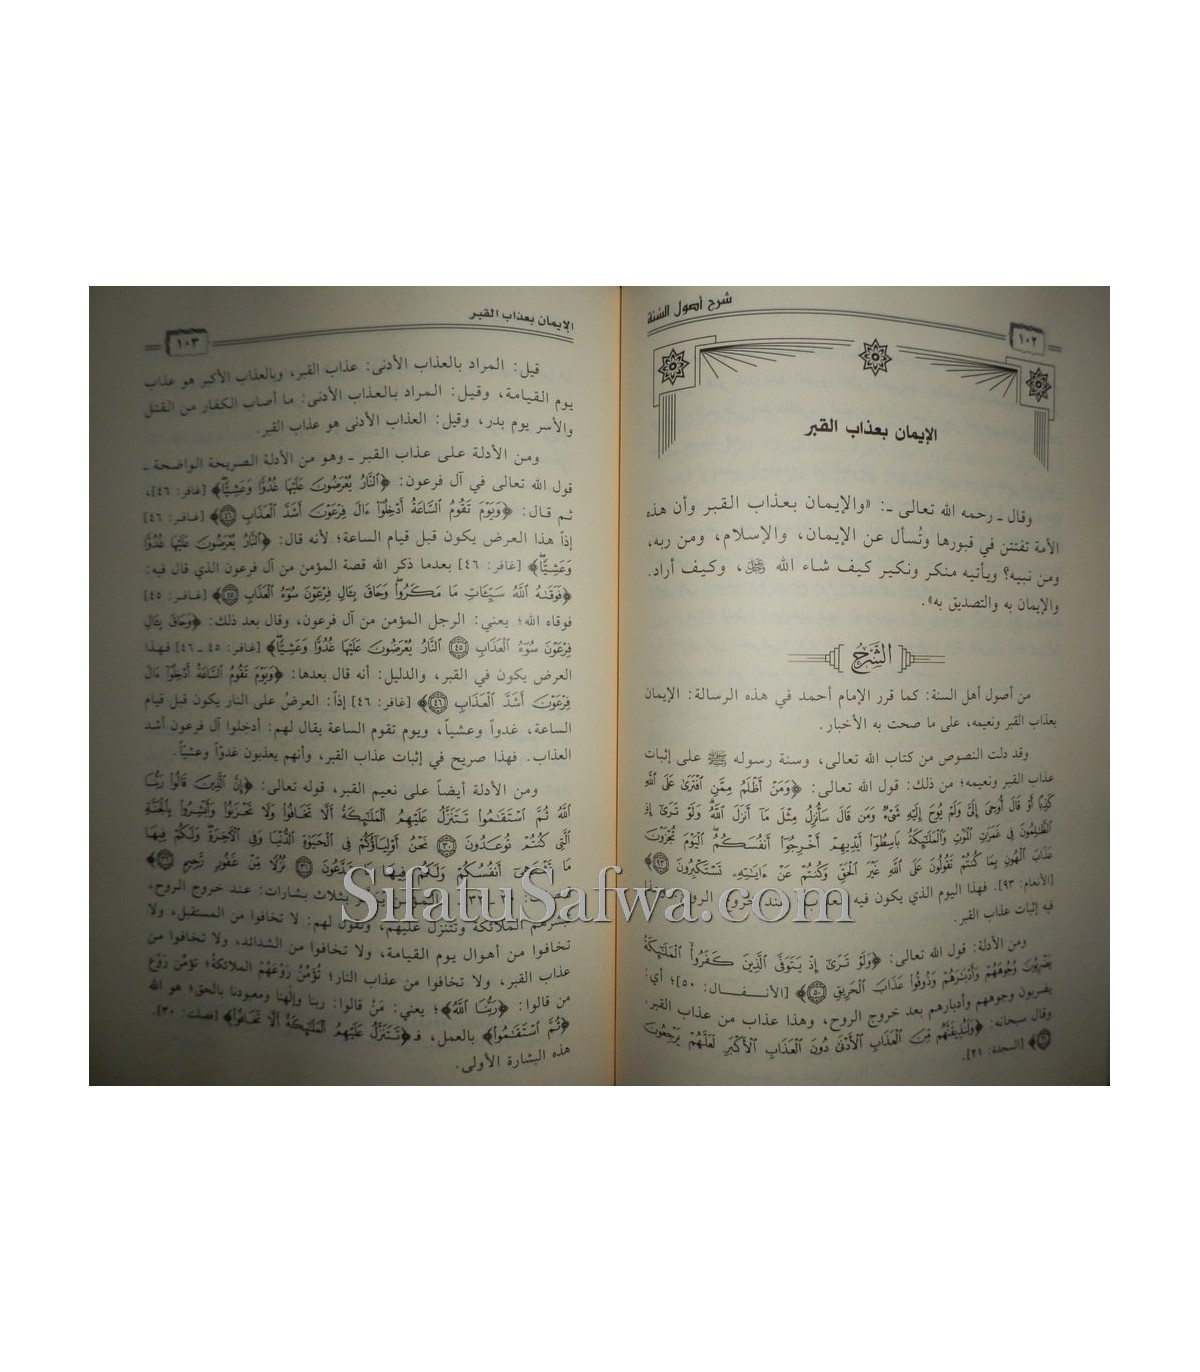 شرح أصول السنة
١٠٢
الإيمان بعذاب القبر
وقال ـ رحمه الله تعالى ـ: «والإيمان بعذاب القبر وأن هذه
الأمة تفتتن في قبورها وتُسأل عن الإيمان، والإسلام، ومن ربه،
ومن نبيه؟ ويأتيه منكر ونكير كيف شاء الله ﷻ، وكيف أراد.
والإيمان به والتصديق به».
الشَّرْحُ
من أصول أهل السنة: كما قرر الإمام أحمد في هذه الرسالة: الإيمان
بعذاب القبر ونعيمه، على ما صحت به الأخبار.
وقد دلت النصوص من كتاب الله تعالى، وسنة رسوله ﷺ على إثبات
عذاب القبر ونعيمه؛ من ذلك: قول الله تعالى: ﴿وَمَنْ أَظْلَمُ مِمَّنِ افْتَرَىٰ عَلَى اللَّهِ
كَذِبًا أَوْ قَالَ أُوحِيَ إِلَيَّ وَلَمْ يُوحَ إِلَيْهِ شَيْءٌ وَمَن قَالَ سَأُنزِلُ مِثْلَ مَا أَنزَلَ اللَّهُ وَلَوْ تَرَىٰ إِذِ
الظَّالِمُونَ فِي غَمَرَاتِ الْمَوْتِ وَالْمَلَائِكَةُ بَاسِطُوا أَيْدِيهِمْ أَخْرِجُوا أَنفُسَكُمُ الْيَوْمَ تُجْزَوْنَ
عَذَابَ الْهُونِ بِمَا كُنتُمْ تَقُولُونَ عَلَى اللَّهِ غَيْرَ الْحَقِّ وَكُنتُمْ عَنْ آيَاتِهِ تَسْتَكْبِرُونَ ٩٣﴾
[الأنعام: ٩٣]. فهذا اليوم الذي يكون فيه العذاب عند خروج الروح وهذا
فيه إثبات عذاب القبر.
ومن الأدلة: قول الله تعالى: ﴿وَلَوْ تَرَىٰ إِذْ يَتَوَفَّى الَّذِينَ كَفَرُوا الْمَلَائِكَةُ
يَضْرِبُونَ وُجُوهَهُمْ وَأَدْبَارَهُمْ وَذُوقُوا عَذَابَ الْحَرِيقِ ٥٠﴾ [الأنفال: ٥٠]؛ أي:
يضربون وجوههم وأدبارهم بعد خروج الروح، وهذا عذاب من عذاب القبر.
وقال سبحانه: ﴿وَلَنُذِيقَنَّهُم مِّنَ الْعَذَابِ الْأَدْنَىٰ دُونَ الْعَذَابِ الْأَكْبَرِ لَعَلَّهُمْ يَرْجِعُونَ
٢١﴾ [السجدة: ٢١].
الإيمان بعذاب القبر
١٠٣
قيل: المراد بالعذاب الأدنى: عذاب القبر، وبالعذاب الأكبر هو عذاب
يوم القيامة، وقيل: المراد بالعذاب الأدنى: ما أصاب الكفار من القتل
والأسر يوم بدر، وقيل: العذاب الأدنى هو عذاب القبر.
ومن الأدلة على عذاب القبر ـ وهو من الأدلة الصريحة الواضحة ـ
قول الله تعالى في آل فرعون: ﴿النَّارُ يُعْرَضُونَ عَلَيْهَا غُدُوًّا وَعَشِيًّا﴾ [غافر: ٤٦]،
ثم قال: ﴿وَيَوْمَ تَقُومُ السَّاعَةُ أَدْخِلُوا آلَ فِرْعَوْنَ أَشَدَّ الْعَذَابِ ٤٦﴾ [غافر: ٤٦]
إذاً هذا العرض يكون قبل قيام الساعة؛ لأنه قال: ﴿النَّارُ يُعْرَضُونَ عَلَيْهَا غُدُوًّا
وَعَشِيًّا﴾ [غافر: ٤٦] بعدما ذكر الله قصة المؤمن من آل فرعون الذي قال فيه:
﴿فَوَقَاهُ اللَّهُ سَيِّئَاتِ مَا مَكَرُوا وَحَاقَ بِآلِ فِرْعَوْنَ سُوءُ الْعَذَابِ ٤٥﴾ [غافر: ٤٥]
فوقاه الله؛ يعني: الرجل المؤمن من آل فرعون، وقال بعد ذلك: ﴿وَحَاقَ بِآلِ
فِرْعَوْنَ سُوءُ الْعَذَابِ ٤٥ النَّارُ يُعْرَضُونَ عَلَيْهَا غُدُوًّا وَعَشِيًّا﴾ [غافر: ٤٥ ـ ٤٦] فهذا
العرض يكون في القبر، والدليل: أنه قال بعدها: ﴿وَيَوْمَ تَقُومُ السَّاعَةُ أَدْخِلُوا آلَ
فِرْعَوْنَ أَشَدَّ الْعَذَابِ ٤٦﴾ [غافر: ٤٦] إذاً: العرضُ على النار يكون قبل قيام
الساعة، غدواً وعشياً، ويوم تقوم الساعة يقال لهم: أدخلوا آل فرعون أشد
العذاب. فهذا صريح في إثبات عذاب القبر، وأنهم يعذبون غدوّاً وعشياً.
ومن الأدلة أيضاً على نعيم القبر، قوله تعالى: ﴿إِنَّ الَّذِينَ قَالُوا رَبُّنَا
اللَّهُ ثُمَّ اسْتَقَامُوا تَتَنَزَّلُ عَلَيْهِمُ الْمَلَائِكَةُ أَلَّا تَخَافُوا وَلَا تَحْزَنُوا وَأَبْشِرُوا بِالْجَنَّةِ
الَّتِي كُنتُمْ تُوعَدُونَ ٣٠ نَحْنُ أَوْلِيَاؤُكُمْ فِي الْحَيَاةِ الدُّنْيَا وَفِي الْآخِرَةِ وَلَكُمْ فِيهَا
مَا تَشْتَهِي أَنفُسُكُمْ وَلَكُمْ فِيهَا مَا تَدَّعُونَ ٣١ نُزُلًا مِّنْ غَفُورٍ رَّحِيمٍ ٣٢﴾
المؤمن بثلاث بشارات: عند خروج الروح،
تبشرهم الملائكة وتتنزل عليهم، وتقول لهم: لا تخافوا من المستقبل، ولا
تخافوا من أهوال يوم القيامة، ولا تخافوا من الشدائد، ولا تخافوا من
عذاب القبر، ولا تخافوا من عذاب النار؛ تُؤَمِّنُ رَوْعَهُمْ الملائكةُ؛ تؤمِّن رَوْعَ
من قالوا: ﴿رَبُّنَا اللَّهُ﴾؛ يعني: مَنْ قالوا: ربنا وإلهنا ومعبودنا بالحق؛ هو الله
﴿ثُمَّ اسْتَقَامُوا﴾ بالعمل، فـ ﴿تَتَنَزَّلُ عَلَيْهِمُ الْمَلَائِكَةُ أَلَّا تَخَافُوا﴾ [فصلت: ٣٠].
هذه البشارة الأولى.
SifatuSafwa.com